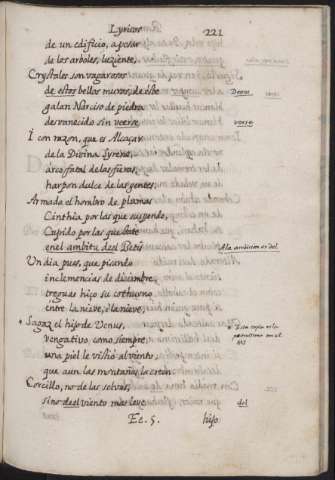 Lyricos 221
de un edificio, a pesar
de los arboles, luziente,
Crystales son vagarosos
de estos bellos muros, de este Destos
galan Narciso de piedra
desvanecido sin veerse, verse.
I con razon, que es Alcaçar
de la Divina Cyrene,
arco fatal de las fieras,
harpon dulce de las gentes;
Armado el hombro de plumas
Cinthia por las que suspende,
Cupido por las que bate
en el ambitu del Betis A la ambicion es del
Un dia pues, que pisando
inclemencias de diciembre,
treguas hizo su cothurno
entre la nieve, i la nieve,
* Sagaz el hijo de Venus, * Esta copla esta
vengativo, como siempre,
una piel le vistió al viento,
que aun las montañas la creen.
Corcillo, no de las selvas,
sino del viento mas leve del
Ee. 5. hijo